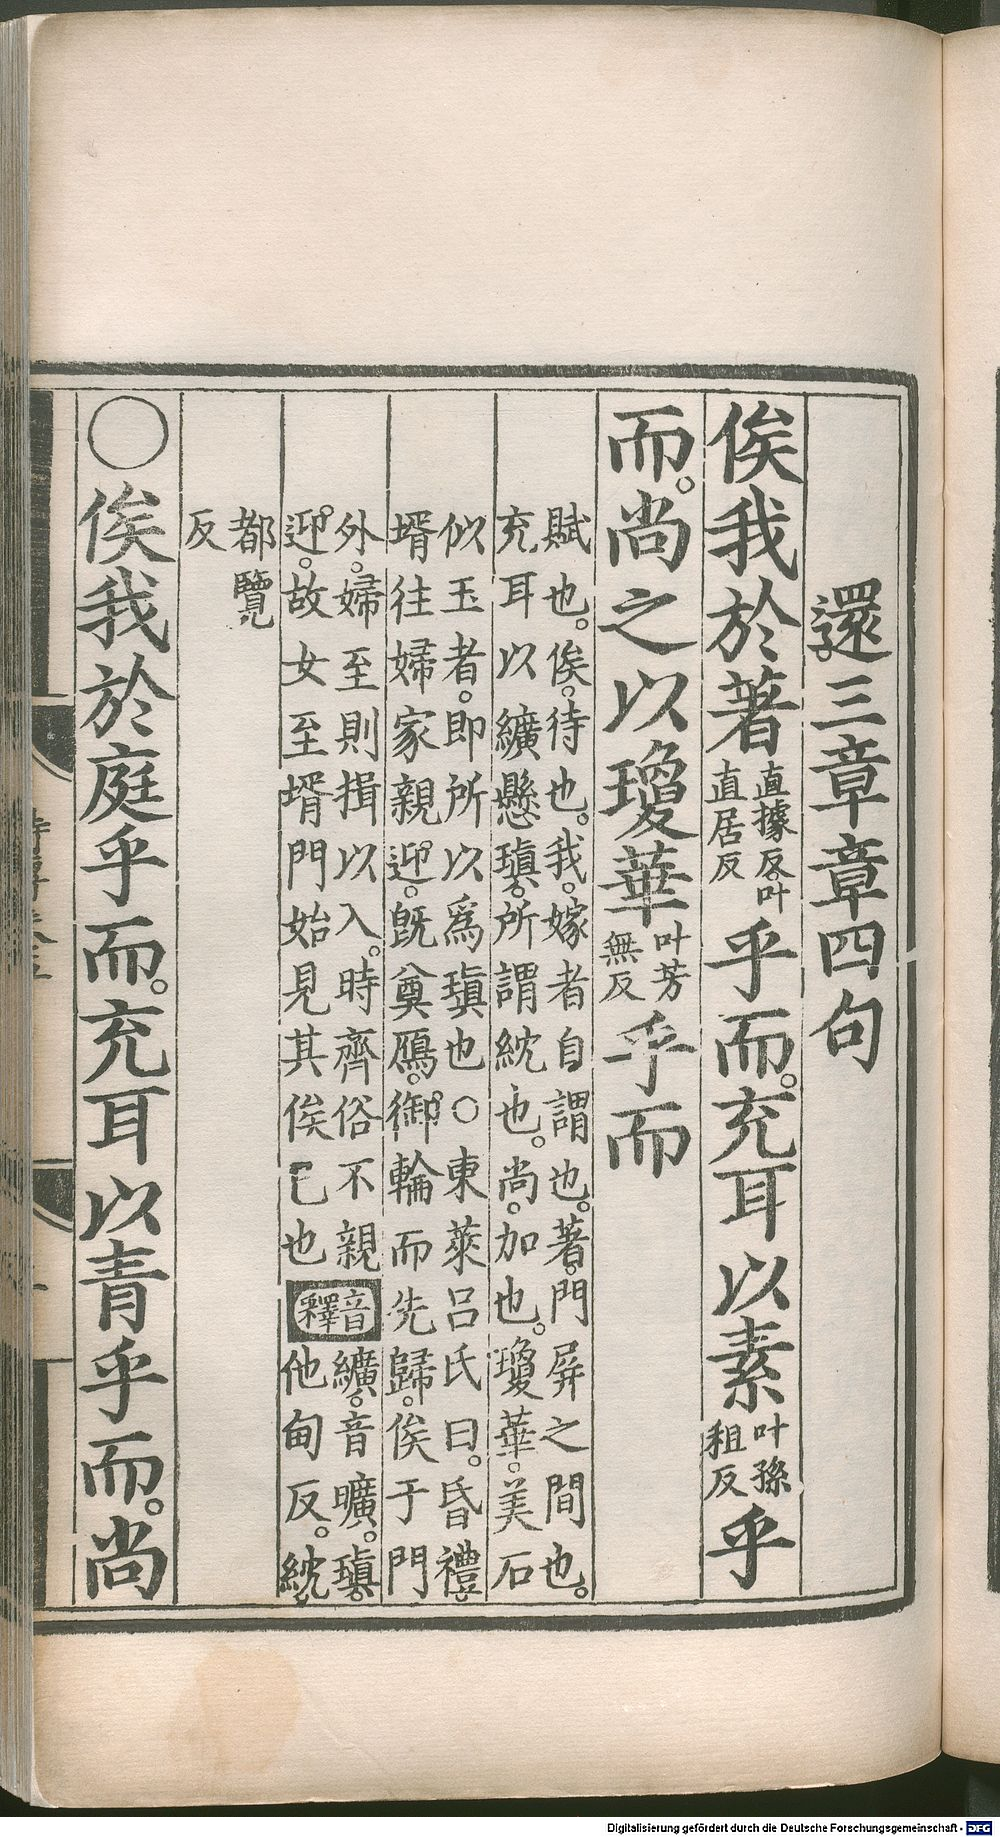 還三章章四句
俟我於著直據反叶直居反乎而。充耳以素叶孫租反乎
而。尚之以瓊華叶芳無反乎而
賦也。俟。待也。我。嫁者自謂也。著。門屏之間也。
充耳以纊懸瑱。所謂紞也。尚。加也。瓊華。美石
似玉者。即所以爲瑱也○東萊呂氏曰。昏禮。
壻往婦家親迎。旣奠鴈。御輪而先歸。俟于門
外。婦至則揖以入。時齊俗不親
迎。故女至壻門始見其俟己也
音釋
纊。音曠。瑱。
他甸反。紞。
都覽
反
○俟我於庭乎而。充耳以青乎而。尚
Digitalisierung gefördert durch die Deutsche Forschungsgemeinschaft - DFG